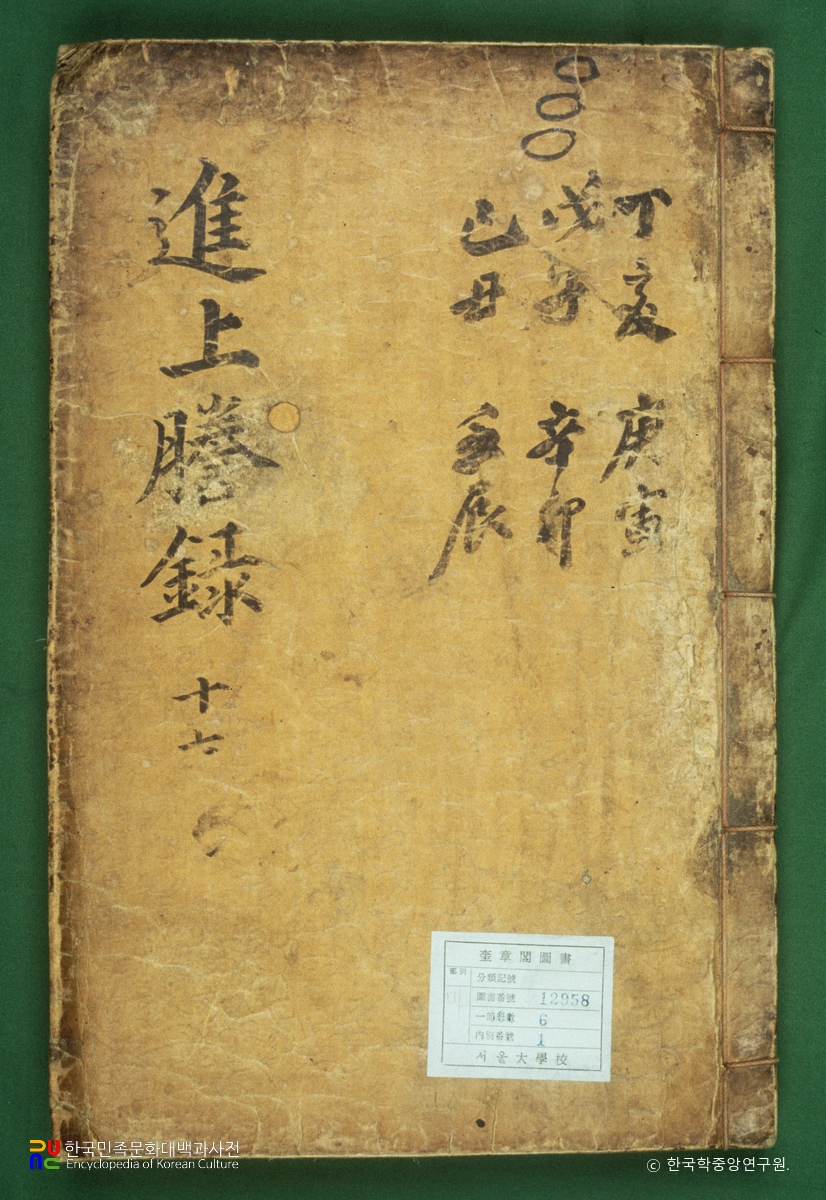 丁亥 庚寅
戊子 辛卯
己丑 壬辰
進上謄録 十七
奎章閣圖書
部別
分類記號
圖書番號 12958
一部冊數 6
內別番號 1
서울大學校
한국민족문화대백과사전
Encyclopedia of Korean Culture
© 한국학중앙연구원.